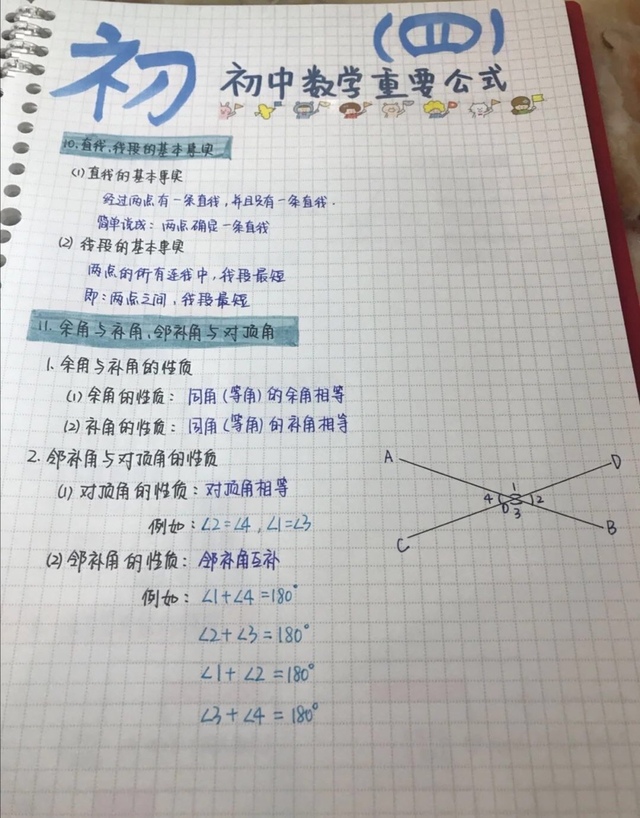 初 (四)
初中数学重要公式
10. 直线、线段的基本事实
(1) 直线的基本事实
经过两点有一条直线,并且只有一条直线.
简单说成: 两点确定一条直线
(2) 线段的基本事实
两点的所有连线中,线段最短
即: 两点之间,线段最短
11. 余角与补角、邻补角与对顶角
1. 余角与补角的性质
(1) 余角的性质: 同角(等角)的余角相等
(2) 补角的性质: 同角(等角)的补角相等
2. 邻补角与对顶角的性质
(1) 对顶角的性质: 对顶角相等
例如: ∠2=∠4, ∠1=∠3
(2) 邻补角的性质: 邻补角互补
例如: ∠1+∠4=180°
∠2+∠3=180°
∠1+∠2=180°
∠3+∠4=180°
A D
1
4 2
O 3
C B